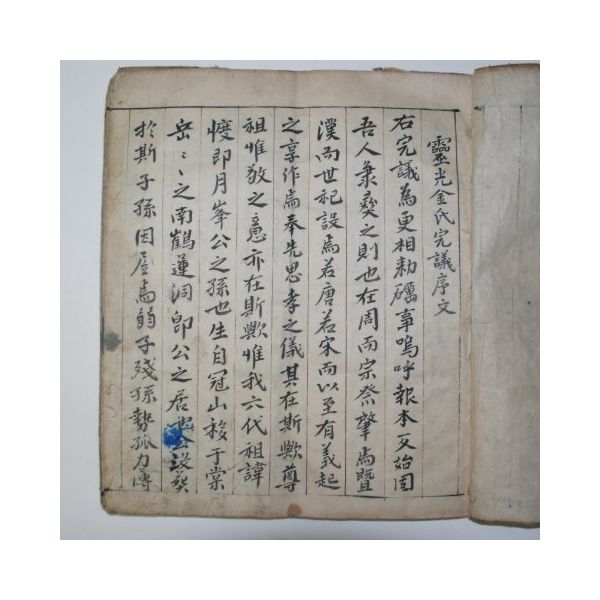 靈光金氏完議序文
右完議為更相勅礪事嗚呼報本反始固
吾人秉彛之則也在周而宗祭肇焉暨
漢而世祀設焉若唐若宋而以至有義起
之享作焉奉先思孝之儀其在斯歟尊
祖惟敬之意亦在斯歟惟我六代祖諱
㥞即月峯公之孫也生自冠山移于棠
岳〻之南鶴蓮洞即公之居也
於斯子孫因居焉弱子殘孫勢孤力